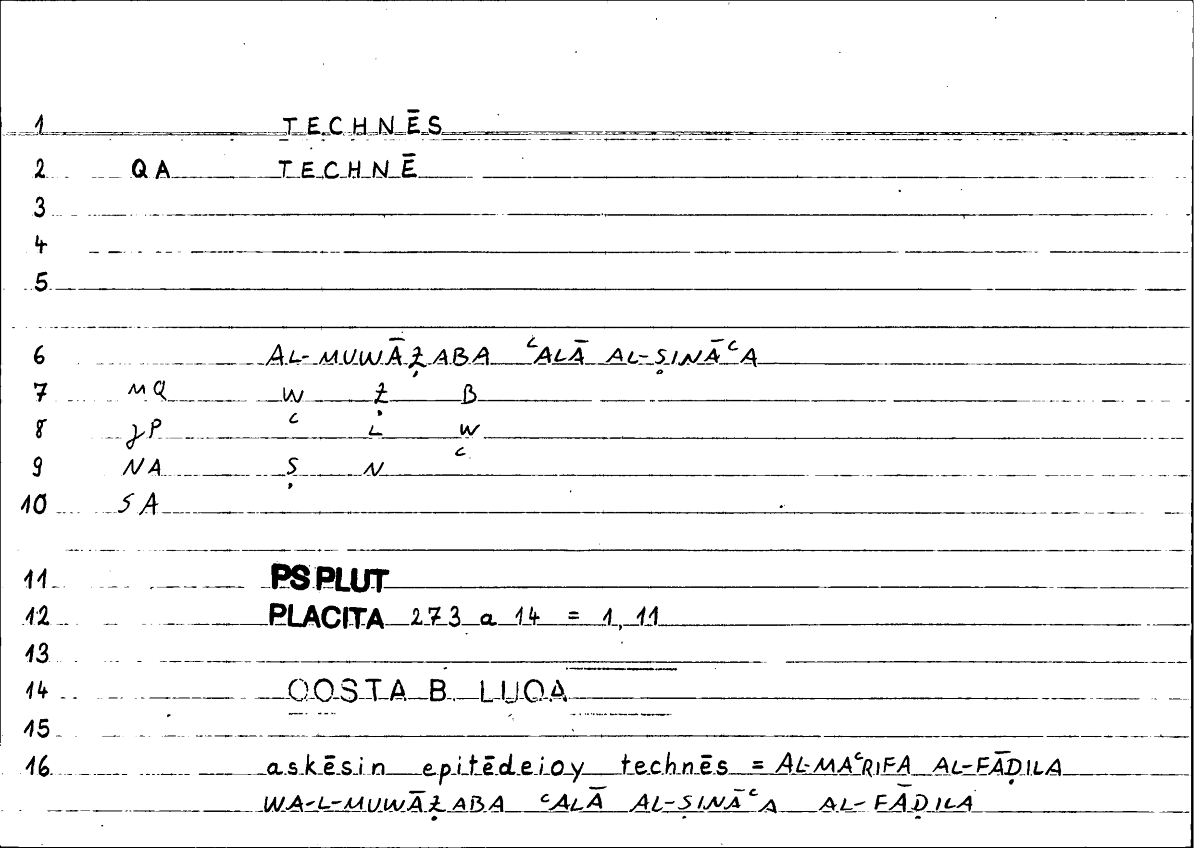 1 TECHNĒS
2 QA TECHNĒ
3
4
5
6 AL-MUWĀẒABA ᶜALĀ AL-ṢINĀᶜA
7 MQ W Ẓ B
8 JP ᶜ L W
9 NA Ṣ N ᶜ
10 SA
11 PS PLUT
12 PLACITA 273 a 14 = 1, 11
13
14 QOSTA B. LUQA
15
16 askēsin epitēdeioy technēs = AL-MAᶜRIFA AL-FĀḌILA
WA-L-MUWĀẒABA ᶜALĀ AL-ṢINĀᶜA AL-FĀḌILA